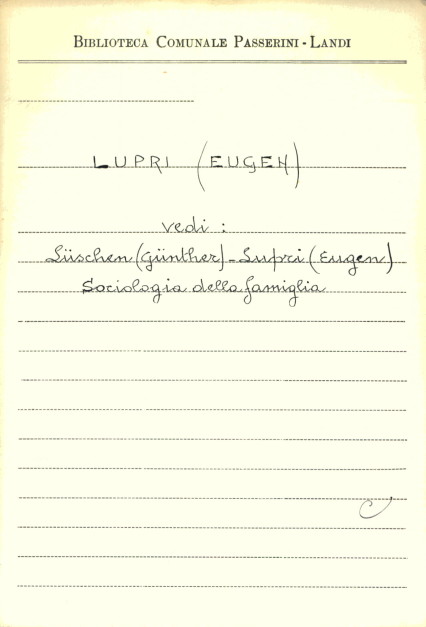 BIBLIOTECA COMUNALE PASSERINI - LANDI
LUPRI (EUGEN)
vedi :
Lüschen (Günther) - Lupri (Eugen)
Sociologia della famiglia